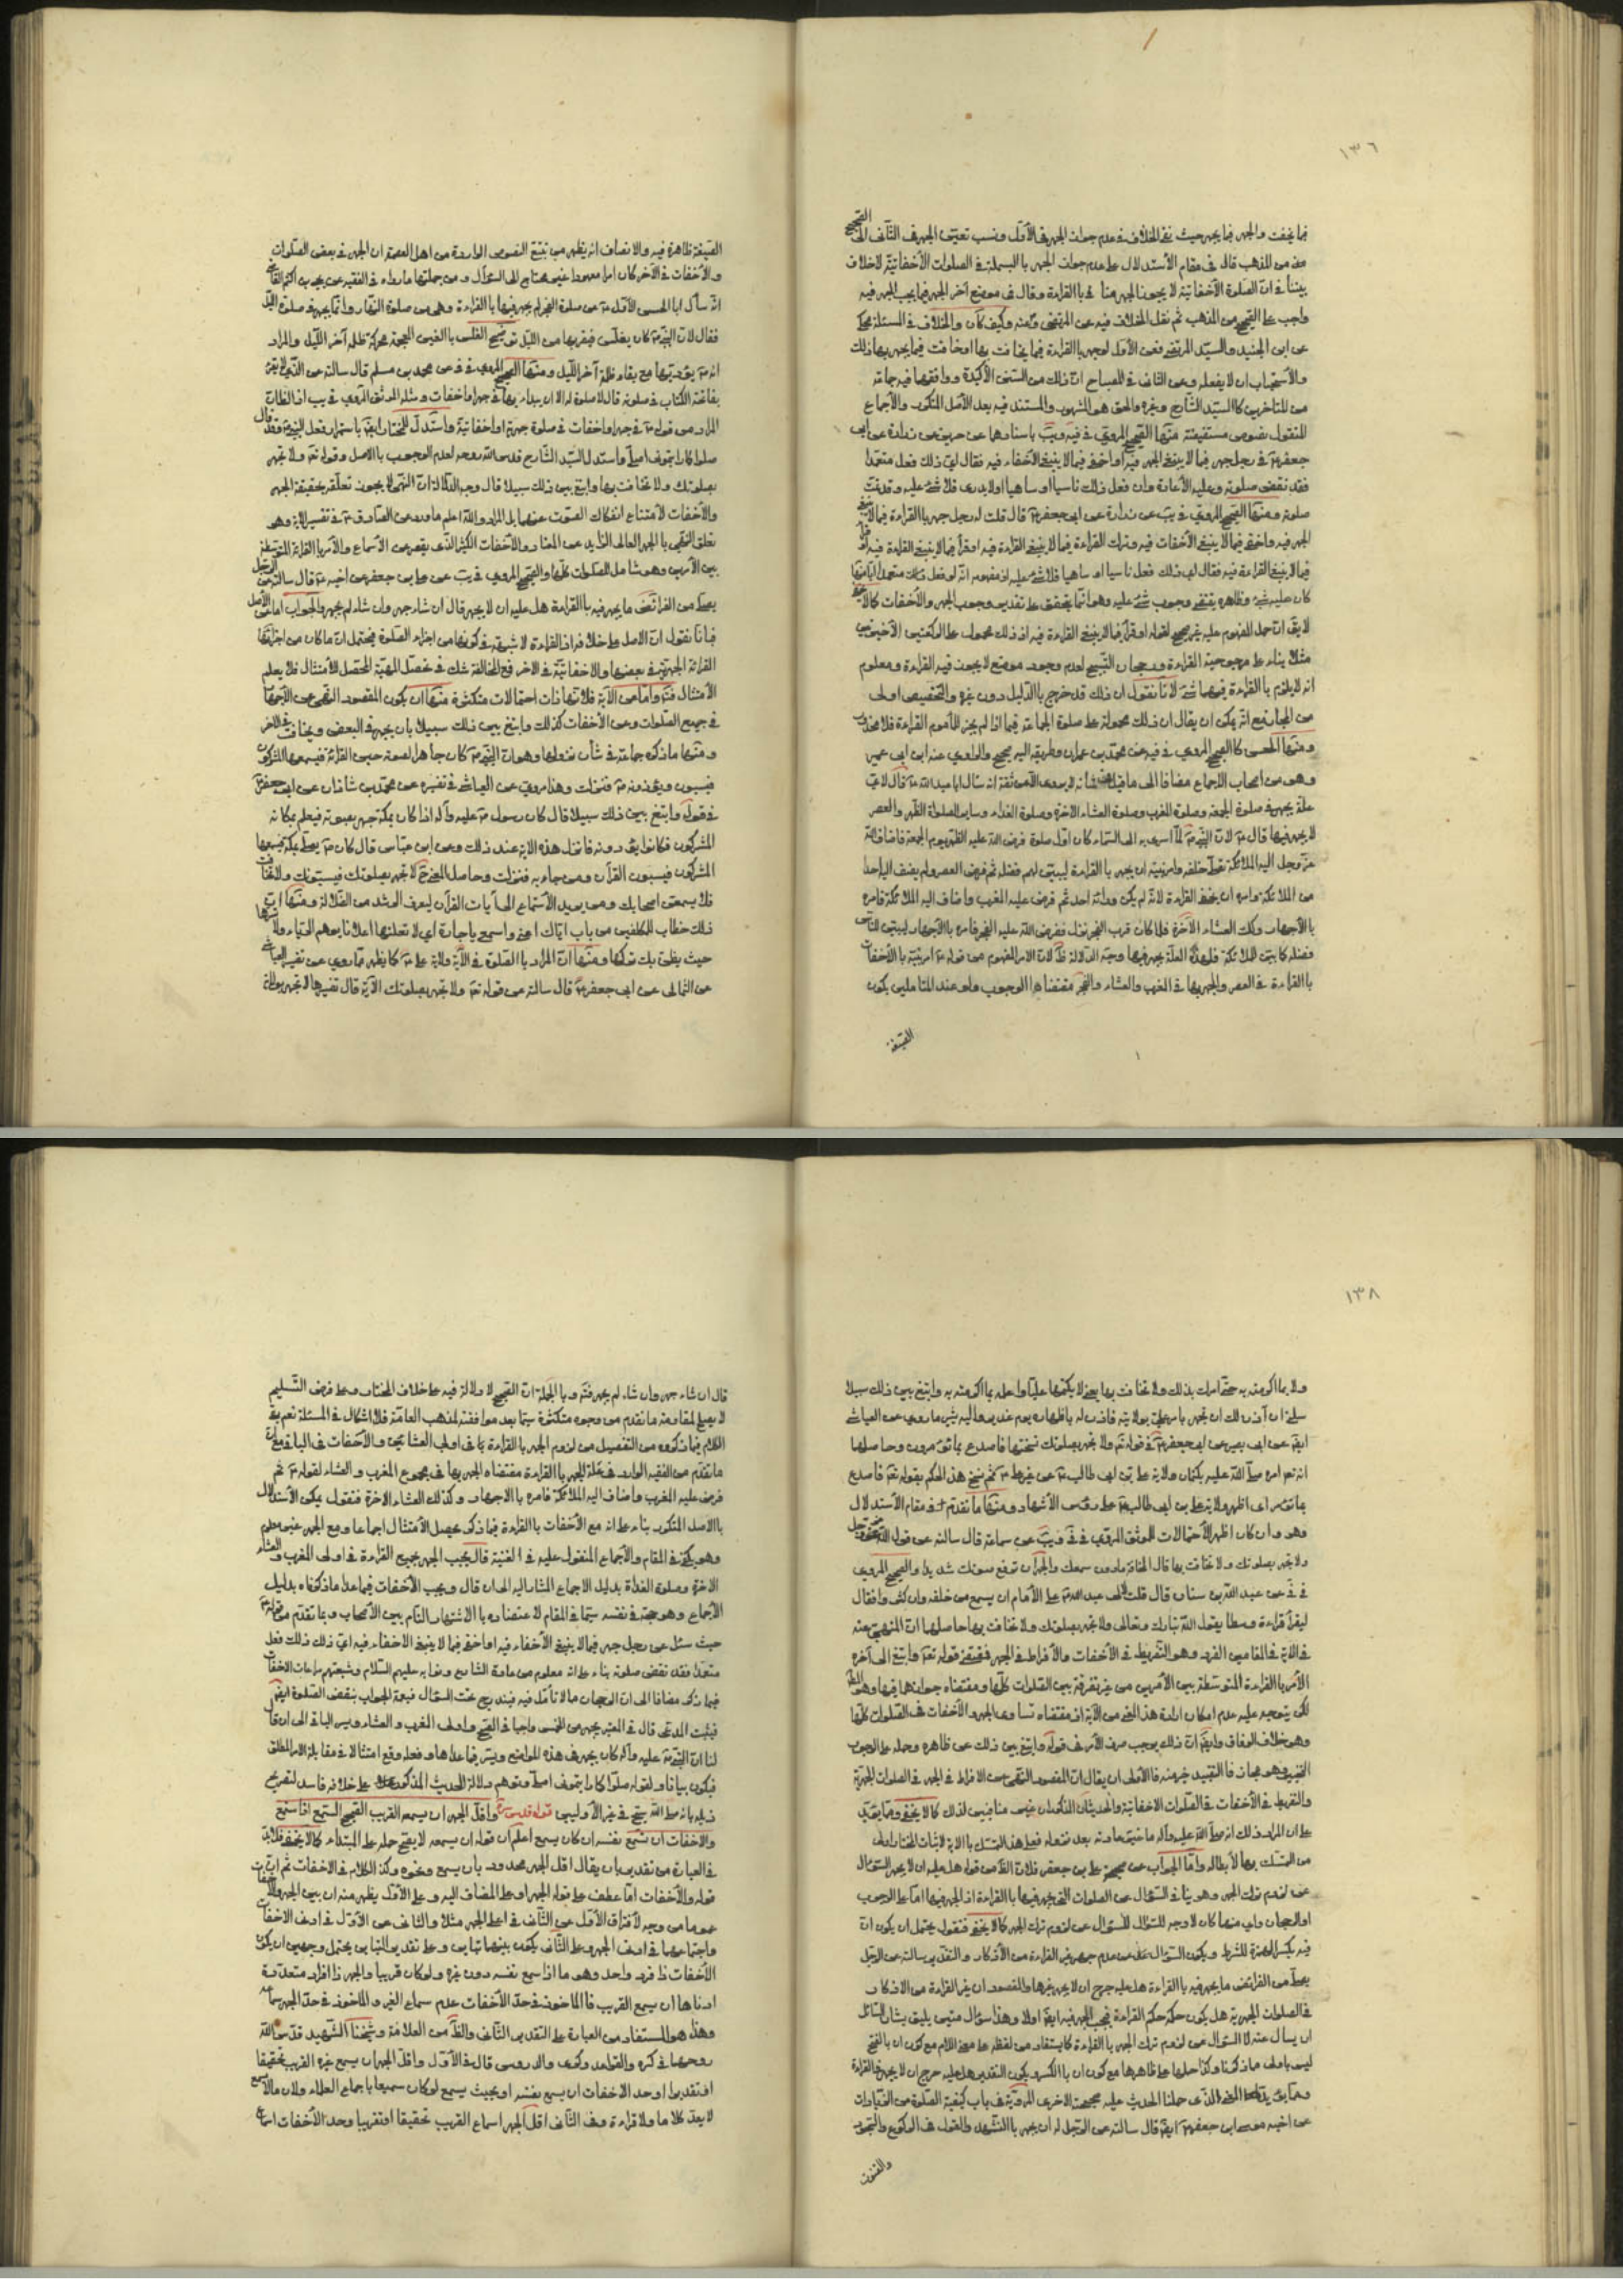 ١٣٦
فيما يخفت والجهر فيما يجهر حيث نفى الخلاف في عدم جواز الجهر في الأول ونسب تعيين الجهر في الثاني الى الصحيح
من المذهب قال في مقام الأستدلال على عدم جواز الجهر بالبسملة في الصلوات الأخفاتية لاخلاف
بيننا في ان الصلوة الأخفاتية لا يجوز الجهر بالقراءة وقال في موضع آخر الجهر فيما يجب الجهر فيه
واجب على الصحيح من المذهب ثم نقل الخلاف فيه عن المرتضى وكيف كان والخلاف في المسئلة محكي
عن ابن الجنيد والسيد المرتضى فعن الأول لوجهر بالقراءة فيما يخافت بها او خافت فيما يجهر بها جاز ذلك
والأستحباب ان لا يفعله وعن الثاني في المصباح ان ذلك من السنن الأكيدة ووافقهما فيه جماعة
من المتاخرين كالسيد الشارح وغيره والحق هو المشهور والمستند فيه بعد الأصل المذكور والأجماع
المنقول نصوص مستفيضة منها الصحيح المروي في فيه ويب باسنادهما عن حريز عن زرارة عن ابي
جعفر في رجل جهر فيما لا ينبغي الجهر فيه او اخفى فيما لا ينبغي الأخفاء فيه فقال اي ذلك فعل متعمدا
فقد نقض صلوته وعليه الأعادة وان فعل ذلك ناسيا او ساهيا اولا يدرى فلا شئ عليه وقد تمت
صلوته ومنها الصحيح المروي في يب عن زرارة عن ابي جعفر قال قلت له رجل جهر بالقراءة فيما لا ينبغي
الجهر فيه واخفى فيما لا ينبغي الأخفات فيه وترك القراءة فيما لا ينبغي القراءة فيه او قرأ فيما لا ينبغي القراءة فيه
فيما لا ينبغي القراءة فيه فقال اي ذلك فعل ناسيا او ساهيا فلا شئ عليه
كان عليه شئ وظاهره يقتضي وجوب شئ عليه وهو انما يتحقق على تقدير وجوب الجهر والأخفات
لا يق ان حمل المفهوم عليه غير صحيح لقوله او قرأ فيما لا ينبغي القراءة فيه اذ ذلك محمول على الركعتين الأخيرتين
مثلا بناء على مرجوحية القراءة ورجحان التسبيح لعدم وجود موضع لا يجوز فيه القراءة ومعلوم
انه لا يلزم بالقراءة فيهما شئ لأنا نقول ان ذلك قد خرج بالدليل دون غيره والتخصيص اولى
من المجاز مع انه يمكن ان يقال ان ذلك محمول على صلوة الجماعة فيما اذا لم يجز للمأموم القراءة
ومنها الحسن كالصحيح المروي في فيه عن محمد بن عمران وطريقه اليه صحيح والراوي عنه ابن ابي عمير
وهو من اصحاب الاجماع مضافا الى ما قيل في شانه لا يروى الا عن ثقة انه سأل ابا عبد الله قال لأي
علة يجهر في صلوة الجمعة وصلوة المغرب وصلوة العشاء الاخرة وصلوة الغداة وساير الصلوة الظهر والعصر
لا يجهر فيها قال لان النبي لما اسرى به الى السماء كان اول صلوة فرض الله عليه الظهر يوم الجمعة فاضاف الله
عز وجل اليه الملائكة تصلى خلفه وامر نبيه ان يجهر بالقراءة ليبين لهم فضله ثم فرض العصر ولم يضف اليه احدا
من الملائكة وامره ان يخفى القراءة لانه لم يكن ورائه احد ثم فرض عليه المغرب واضاف اليه الملائكة فامره
بالأجهار وكذلك العشاء الاخرة فلما كان قرب الفجر نزل ففرض الله عليه الفجر فامره بالأجهار ليبين للناس
فضله كما بين للملائكة فلهذه العلة يجهر فيها وجه الدلالة ان الامر المفهوم من قوله امر نبيه بالأخفات
بالقراءة في العصر والجهر بها في المغرب والعشاء والفجر مقتضاها الوجوب ولو عند المتاملين يكون
الصيغة
الصيغة ظاهرة فيه والانصاف انه يظهر من تتبع النصوص الواردة من اهل العصمة ان الجهر في بعض الصلوات
والأخفات في الآخر كان امرا معهودا غير محتاج الى السؤال ومن جملتها ما رواه في الفقيه عن يحيى بن اكثم القاضي
انه سأل ابا الحسن الأول عن صلوة الفجر لم يجهر فيها بالقراءة وهي من صلوة النهار وانما يجهر في صلوة الليل
فقال لان النبي كان يغلس فيقربها من الليل الغلس بالغين المعجمة محركة ظلمة آخر الليل والمراد
انه يؤديها مع بقاء ظلمة آخر الليل ومنها الصحيح المروي في في عن محمد بن مسلم قال سالته عن الذي لا يقرأ
بفاتحة الكتاب في صلوته قال لا صلوة له الا ان يبدأ بها في جهر او اخفات ومثله الموثق المروي في يب اذ الظاهر
المراد من قوله في جهر او اخفات في صلوة جهرية او اخفاتية واستدل للمختار ايضا باستمرار فعل النبي وقد قال
صلوا كما رايتموني اصلي واستدل السيد الشارح قدس الله روحه لعدم الوجوب بالاصل وقوله تع ولا تجهر
بصلوتك ولا تخافت بها وابتغ بين ذلك سبيلا قال وجه الدلالة ان النهي لا يجوز تعلقه بحقيقة الجهر
والأخفات لأمتناع انفكاك الصوت عنهما بل المراد والله اعلم ما ورد عن الصادق في تفسير الاية وهو
تعلق النهي بالجهر العالي الزايد عن المعتاد والأخفات الكثير الذي يقصر عن الأسماع والأمر بالقراءة المتوسطة
بين الأمرين وهو شامل للصلوات كلها والصحيح المروي في يب عن علي بن جعفر عن اخيه قال سالته عن الرجل
يصلي من الفرائض ما يجهر فيه بالقراءة هل عليه ان لا يجهر قال ان شاء جهر وان شاء لم يجهر والجواب اما عن الأصل
فبانا نقول ان الاصل على خلاف مراده اذ القراءة لا شبهة في كونها من اجزاء الصلوة فيحتمل ان ما كان من اجزائها
القراءة الجهرية في بعضها والاخفاتية في الاخر فمع المخالفة شك في تحصل المهية المحصل للأمتثال فلا يعلم
الأمتثال فتدبر واما عن الآية فلانها ذات احتمالات متكثرة منها ان يكون المقصود النهي عن الجهر
في جميع الصلوات وعن الأخفات كذلك وابتغ بين ذلك سبيلا بان يجهر في البعض ويخافت في الآخر
ومنها ما ذكره جماعة في شأن نزولها وهو ان النبي كان جاهرا لصوته حين القرائة فيسمعها المشركون
فيسبون ويؤذونه فنزلت وهذا مروي عن العياشي في تفسيره عن محمد بن شاذان عن ابي جعفر
في قوله وابتغ بين ذلك سبيلا قال كان رسول عليه وآله اذا كان بمكة جهر بصوته فيعلم بمكانه
المشركون فكانوا يؤذونه فانزل هذه الآية عند ذلك وعن ابن عباس قال كان يصلي بمكة فيسمعها
المشركون فيسبون القرآن ومن جاء به فنزلت وحاصل المعنى لا تجهر بصلوتك فيسبونك ولا تخافت
فلا يسمعن اصحابك ومن يريد الأستماع الى آيات القرآن ليعرف الرشد من الضلالة ومنها
ذلك خطاب للمكلفين من باب اياك اعني واسمعي ياجارة اي لا تعلنها اعلانا يوهم الرياء ولا تسرها
حيث يظن بك تركها ومنها ان المراد بالصلوة في الآية ولاية علي كما يظهر مما روي عن تفسير العياشي
عن الثمالى عن ابي جعفر قال سالته عن قوله تع ولا تجهر بصلوتك الآية قال تفسيرها لا تجهر بولاية
١٣٨
ولا بما اكرمته به حتى امرك بذلك ولا تخافت بها يعني لا تكتمها عليا واعلمه بما اكرمته به وابتغ بين ذلك سبيلا
سلني ان آذن لك ان تجهر بامر علي بولايته فاذن له باظهاره يوم غدير خم واليه يشير ما روي عن العياشي
ايضا عن ابي بصير عن ابي جعفر في قوله تع ولا تجهر بصلوتك نسختها فاصدع بما تؤمر وحاصلها
انه تعم امره صلى الله عليه بكتمان ولاية علي بن ابي طالب عن غيره ثم نسخ هذا الحكم بقوله تع فاصدع
بما تؤمر اى اظهر ولاية علي بن ابي طالب على رؤس الأشهاد ومنها ما تقدم في مقام الأستدلال
وهو وان كان اظهر الأحتمالات للموثق المروي في في ويب عن سماعة قال سالته عن قول الله عز وجل
ولا تجهر بصلوتك ولا تخافت بها قال المخافة مادون سمعك والجهر ان ترفع صوتك شديدا والصحيح المروي
في في عن عبد الله بن سنان قال قلت لابي عبد الله على الأمام ان يسمع من خلفه وان كثروا فقال
ليقرأ قراءة وسطا يقول الله تبارك وتعالى ولا تجهر بصلوتك ولا تخافت بها حاصلها ان المنهي عنه
في الآية في المقامين الفرد وهو التفريط في الأخفات والأفراط في الجهر فمقتضى قوله تع وابتغ الى آخره
الأمر بالقراءة المتوسطة بين الأمرين من غير تفرقة بين الصلوات كلها ومقتضاه جوازها فيها وهو المط
لكن يتوجه عليه عدم امكان ارادة هذا المعنى من الآية اذ مقتضاه تساوى الجهر والأخفات في الصلوات كلها
وهو خلاف الوفاق وايضا ان ذلك يوجب صرف الأمر في قوله وابتغ بين ذلك عن ظاهره وحمله على الوجوب
التخييرى وهو مجاز فالأولى ان يقال ان المقصود النهي عن الافراط في الجهر في الصلوات الجهرية
والتفريط في الأخفات في الصلوات الاخفاتية والحديثان المذكوران غير منافيين لذلك كما لا يخفى ومما يؤيد
على ان المراد ذلك انه صلى الله عليه وآله ما غير عادته بعد نزوله فعلى هذا التمسك بالآية لاثبات المختار اولى
من التمسك بها لأبطاله واما الجواب عن صحيحة علي بن جعفر فلان الظ من قوله هل عليه ان لا يجهر السؤال
عن لزوم ترك الجهر وهو ينافي السؤال عن الصلوات التي يجهر فيها بالقراءة اذ الجهر فيها اما على الوجوب
او الرجحان واي منهما كان لا وجه للسؤال عن لزوم ترك الجهر كما لا يخفى فنقول يحتمل ان يكون ان
فيه بكسر الهمزة للشرط ويكون السؤال عن عدم جهر غير القراءة من الأذكار والتقدير سالته عن الرجل
يصلي من الفرائض ما يجهر فيه بالقراءة هل عليه حرج ان لا يجهر بغيرها والمقصود ان غير القراءة من الاذكار
في الصلوات الجهرية هل يكون حكمه حكم القراءة فيجب الجهر فيه ايضا اولا وهذا سؤال متين يليق بشان السائل
ان يسال عنه لا السؤال عن لزوم ترك الجهر بالقراءة كما يستفاد من لفظة على ومعنى اللام مع كون ان بالفتح
ليس باولى مما ذكرنا وكذا حملها على ظاهرها مع كون ان بالكسر ويكون التقدير هل عليه حرج ان لا يجهر في القراءة
ومما يؤيد المعنى الذي حملنا الحديث عليه صحيحة الاخرى المروية في باب كيفية الصلوة من الزيادات
عن اخيه موسى ابن جعفر ايضا قال سالته عن الرجل له ان يجهر بالتشهد والقول في الركوع والسجود
والقنوت
قال ان شاء جهر وان شاء لم يجهر فتم وبالجملة ان الصحيح لا دلالة فيه على خلاف المختار وعلى فرض التسليم
لا يصلح لمقاومة ما تقدم من وجوه متكثرة سيما بعد موافقته لمذهب العامة فلا اشكال في المسئلة نعم بقي
الكلام فيما ذكروه من التفصيل من لزوم الجهر بالقراءة في اولى العشائين والأخفات في الباقي مع ان
ما تقدم من الفقيه الوارد في علة الجهر بالقراءة مقتضاه الجهر بها في مجموع المغرب والعشاء لقوله ثم
فرض عليه المغرب واضاف اليه الملائكة فامره بالاجهار وكذلك العشاء الاخرة فنقول يمكن الأستدلال
بالاصل المذكور بناء على انه مع الأخفات بالقراءة فيما ذكر يحصل الامتثال اجماعا ومع الجهر غير معلوم
وهو يكفي في المقام والأجماع المنقول عليه في الغنية قال يجب الجهر بجميع القراءة في اولى المغرب والعشاء
الاخرة وصلوة الغداة بدليل الاجماع المشار اليه الى ان قال ويجب الأخفات فيما عدا ما ذكرناه بدليل
الأجماع وهو حجة في نفسه سيما في المقام لاعتضاده بالاشتهار التام بين الأصحاب وبما تقدم من قوله
حيث سئل عن رجل جهر فيما لا ينبغي الأخفاء فيه او اخفى فيما لا ينبغي الاخفاء فيه اي ذلك فعل
متعمدا فقد نقض صلوته بناء على انه معلوم من عادة الشارع ونوابه عليهم السلام وشيعتهم مراعات الاخفات
فيما ذكر مضافا الى ان الرجحان مما لا تأمل فيه فيندرج تحت السؤال فيعمه الجواب بنقض الصلوة ايضا
فيثبت المدعى قال في المعتبر يجهر من الخمس واجبا في الصبح واولى المغرب والعشاء ويسر الباقي الى ان قال
لنا ان النبي عليه وآله كان يجهر في هذه المواضع ويسر فيما عداها وفعله وقع امتثالا في مقابلة الامر المطلق
فيكون بيانا ولقوله صلوا كما رايتموني اصلي وتوهم دلالة الحديث المذكور على خلافه فاسد لتصريح
ذيله بانه صلى الله يسبح في غير الأوليين قوله قدس سره واقل الجهر ان يسمعه القريب الصحيح السمع اذا استمع
والاخفات ان يسمع نفسه ان كان يسمع اعلم ان قوله ان يسمعه لا يصح حمله على المبتداء كما لا يخفى فلابد
في العبارة من تقدير بان يقال اقل الجهر محدود بان يسمع ونحوه وكذا الكلام في الاخفات ثم ان
قوله والأخفات اما عطف على قوله الجهر او على المضاف اليه وعلى الأول يظهر منه ان بين الجهر والأخفات
عموما من وجه لأفتراق الأول عن الثاني في اعلى الجهر مثلا والثاني عن الأول في ادنى الاخفات
واجتماعهما في ادنى الجهر وعلى الثاني يكون بينهما تباين وعلى تقدير التباين يحتمل وجهين ان يكون
الأخفات ذا فرد واحد وهو ما اذا سمع نفسه دون غيره ولو كان قريبا والجهر ذا افراد متعددة
ادناها ان يسمع القريب فالماخوذ في حد الأخفات عدم سماع الغير والماخوذ في حد الجهر سماعه
وهذا هو المستفاد من العبارة على التقدير الثاني والظ من العلامة وشيخنا الشهيد قدس الله
روحهما في كره والقواعد وكرى والدروس قال في الأول واقل الجهر ان يسمع غيره القريب تحقيقا
او تقديرا وحد الاخفات ان يسمع نفسه او بحيث يسمع لو كان سميعا باجماع العلماء ولان ما لا يسمع
لا يعد كلاما ولا قراءة وفي الثاني اقل الجهر اسماع القريب تحقيقا او تقديرا وحد الأخفات اسماع